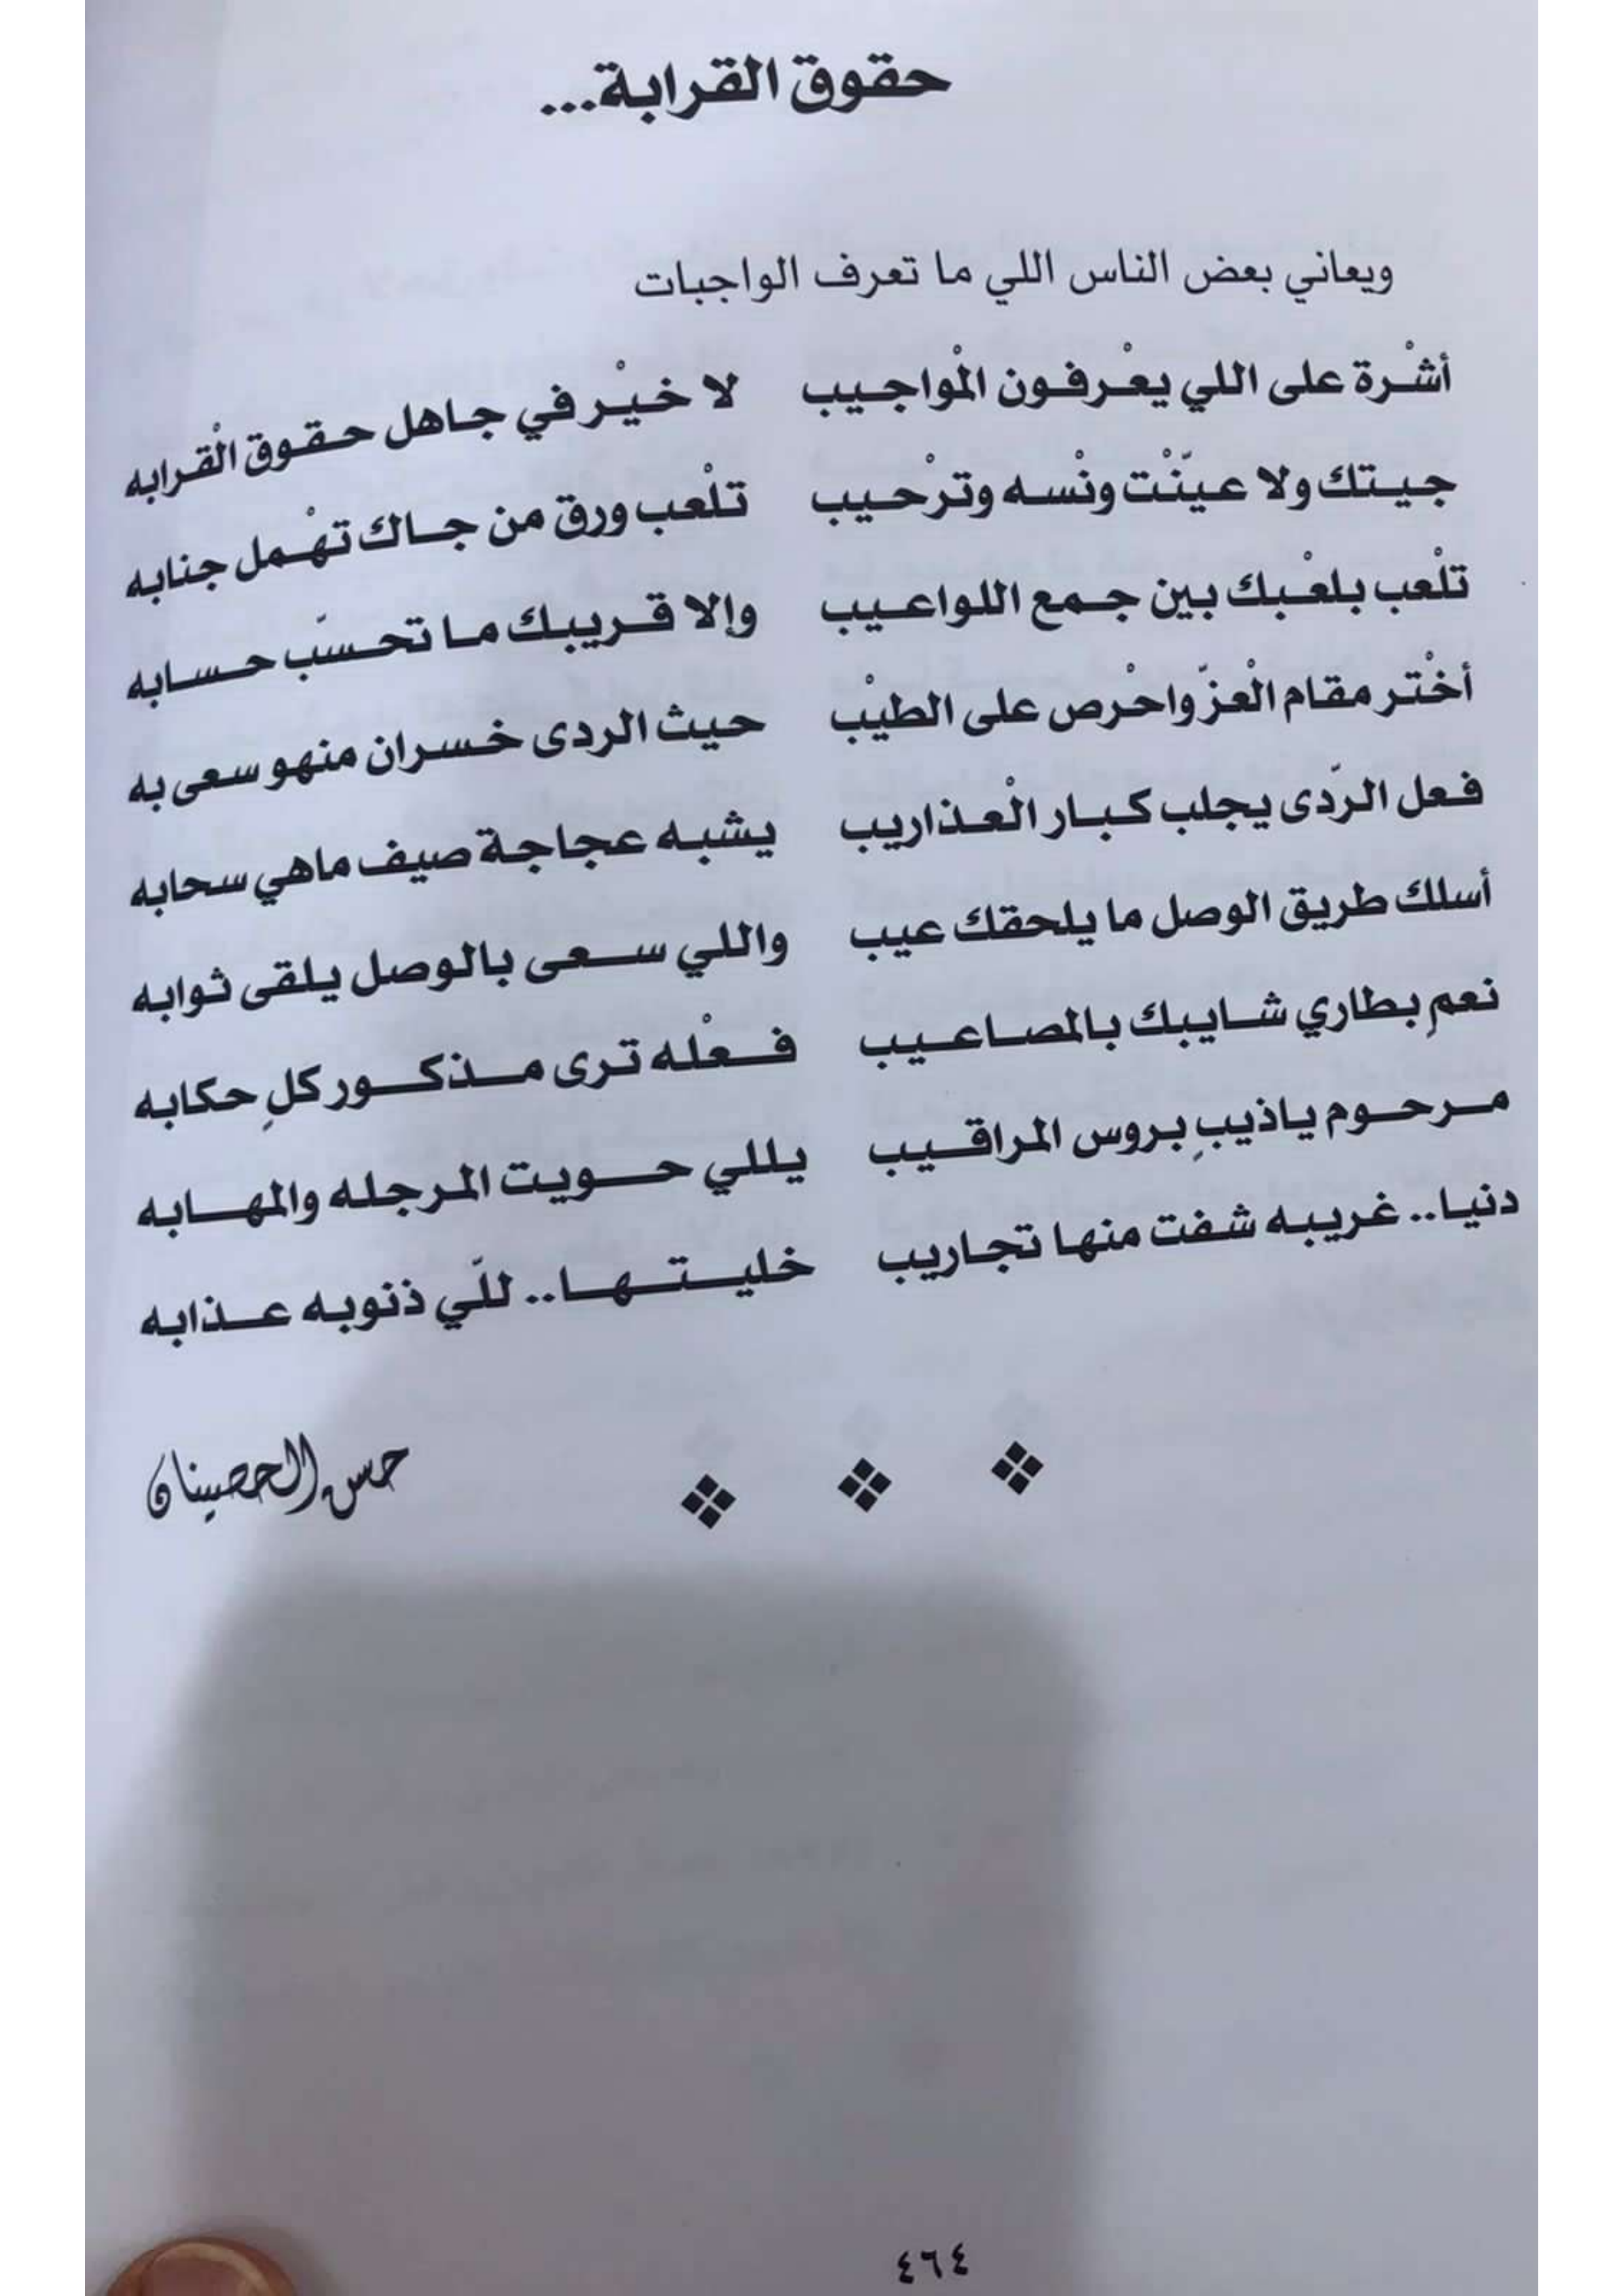 حقوق القرابة...
ويعاني بعض الناس اللي ما تعرف الواجبات
أشْرة على اللي يعْرفون الْمواجيب لا خيْر في جاهل حقوق الْقرابه
جيتك ولا عيّنْت ونْسه وترْحيب تلْعب ورق من جاك تهْمل جنابه
تلْعب بلعْبك بين جمع اللواعيب وإلا قريبك ما تحسّب حسابه
أخْتر مقام الْعزّ واحْرص على الطيْب حيث الردى خسران منهو سعى به
فعل الرّدى يجلب كبار الْعذاريب يشبه عجاجة صيف ماهي سحابه
أسلك طريق الوصل ما يلحقك عيب واللي سعى بالوصل يلقى ثوابه
نعمِ بطاري شايبك بالمصاعيب فعْله ترى مذكور كلِ حكابه
مرحوم ياذيبِ بروس المراقيب يللي حويت المرجله والمهابه
دنيا.. غريبه شفت منها تجاريب خليتها.. للّي ذنوبه عذابه
حس الحصينان
٤٦٤